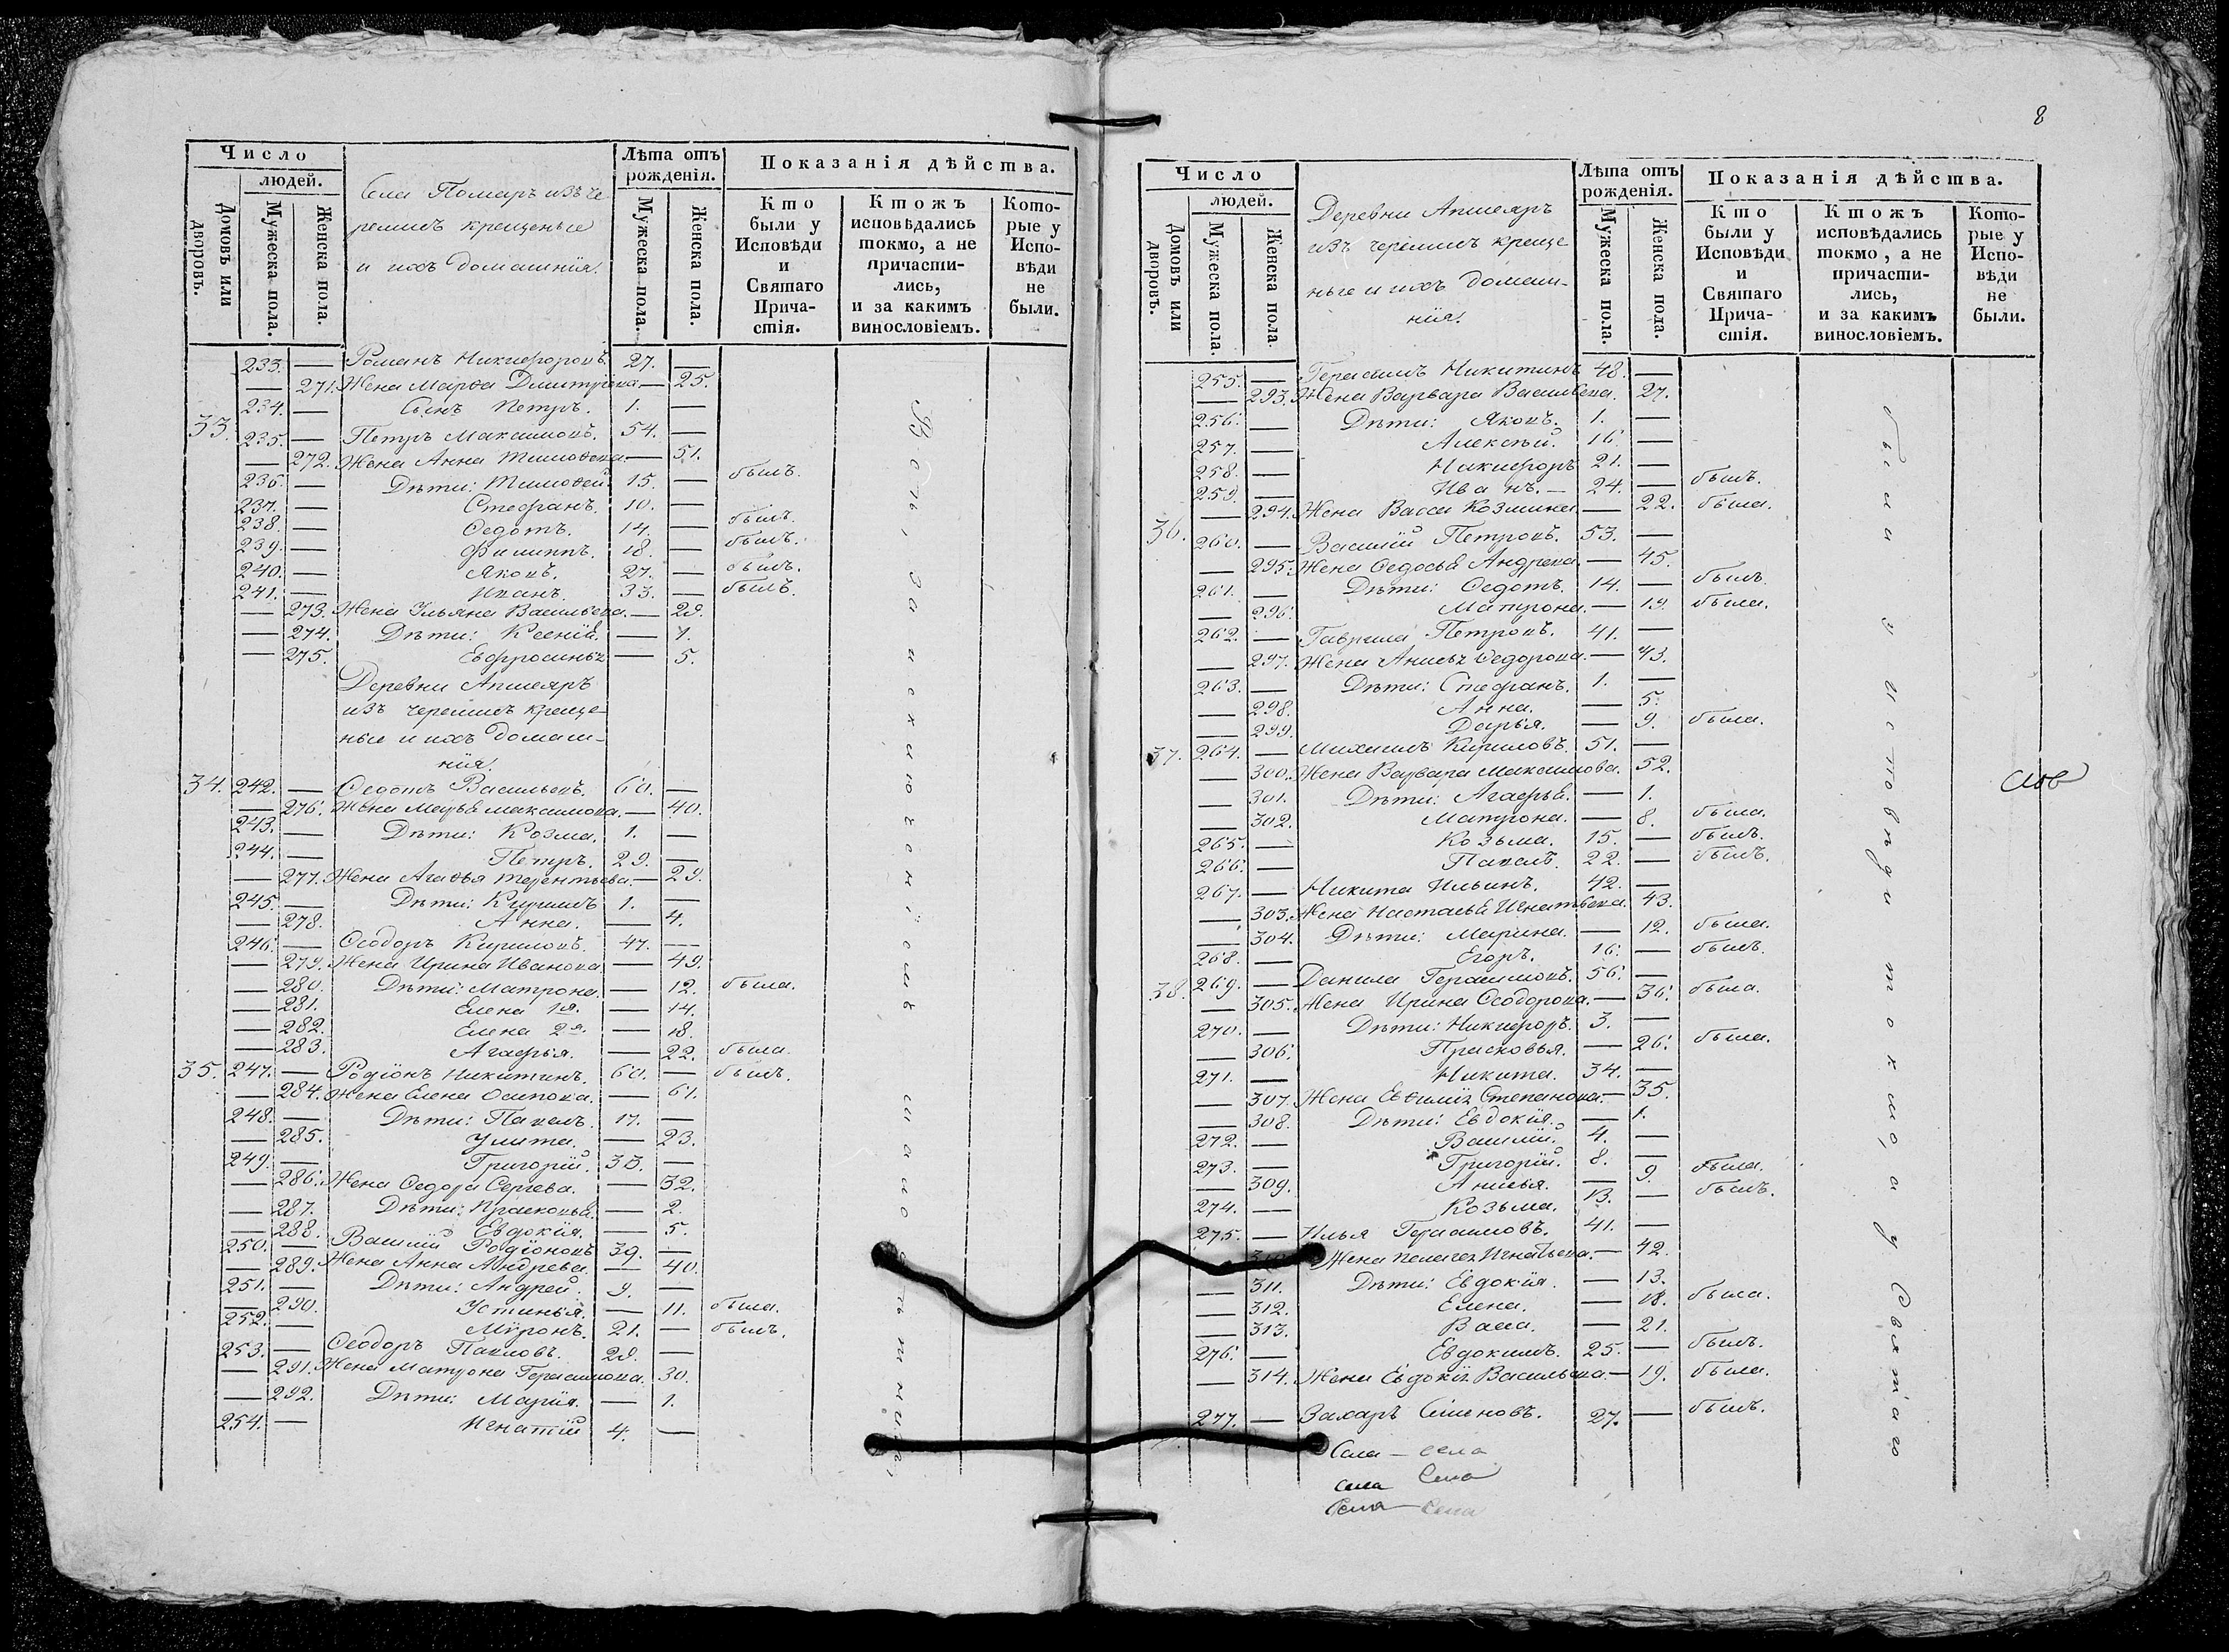 Число
людей.
Домовъ или дворовъ.
Мужеска пола.
Женска пола.
Села Помаръ изъ че
ремисъ крещеные
и ихъ домашнія.
Лѣта отъ рожденія.
Мужеска пола.
Женска пола.
Показанія дѣйства.
Кто были у Исповѣди и Святаго Прича-стія.
Ктожъ исповѣдались токмо, а не причасти-лись, и за какимъ винословіемъ.
Кото-рые у Испо-вѣди не были.
233. — Романъ Никифоровъ. 27. —
— 271. Жена Марѳа Дмитріева. — 25.
234. — Сынъ Петръ. 1. —
33. 235. — Петръ Максимовъ. 54. —
— 272. Жена Анна Тимоѳеева. — 51.
236. — Дѣти: Тимоѳей. 15. — былъ.
237. — Стефанъ. 10. —
238. — Ѳедотъ. 14. — былъ.
239. — Филиппъ. 18. — былъ.
240. — Яковъ. 27. — былъ.
241. — Иванъ. 33. — былъ.
— 273. Жена Ульяна Васильева. — 29.
— 274. Дѣти: Ксенія. — 1.
— 275. Евфросинья — 5.
Деревни Апшеяръ
изъ черемисъ креще-
ные и ихъ домаш-
нія.
34. 242. — Ѳедотъ Васильевъ. 60. —
— 276. Жена Марья Максимова. — 40.
243. — Дѣти: Козма. 1. —
244. — Петръ. 29. —
— 277. Жена Агаѳья Терентьева. — 29.
245. — Дѣти: Кирилъ 1. —
— 278. Анна. — 4.
246. — Ѳеодоръ Кириловъ. 47. —
— 279. Жена Ирина Иванова — 49.
— 280. Дѣти: Матрона. — 12. была.
— 281. Елена 1я. — 14.
— 282. Елена 2я. — 18.
— 283. Агафья. — 22. была.
35. 247. — Родіонъ Никитинъ. 60. — былъ.
— 284. Жена Елена Осипова. — 61.
248. — Дѣти: Павелъ. 17. —
— 285. Улита. — 23.
249. — Григорій. 33. —
— 286. Жена Ѳедора Сергева. — 32.
— 287. Дѣти: Прасковья. — 2.
— 288. Евдокія. — 5.
250. — Василій Родіоновъ 39. —
— 289. Жена Анна Андрева. — 40.
251. — Дѣти: Андрей. 9. —
— 290. Устинья. — 11. была.
252. — Миронъ. 21. — былъ.
253. — Ѳеодоръ Павловъ. 29. —
— 291. Жена Матрона Герасимова. 30.
— 292. Дѣти: Марія. — 1.
254. — Игнатій 4. —
8
Число
людей.
Домовъ или дворовъ.
Мужеска пола.
Женска пола.
Деревни Апшеяръ
изъ черемисъ креще
ные и ихъ домаш-
нія.
Лѣта отъ рожденія.
Мужеска пола.
Женска пола.
Показанія дѣйства.
Кто были у Исповѣди и Святаго Прича-стія.
Ктожъ исповѣдались токмо, а не причасти-лись, и за какимъ винословіемъ.
Кото-рые у Испо-вѣди не были.
255. — Герасимъ Никитинъ 48. —
— 293. Жена Варвара Васильева. 27.
256. — Дѣти: Яковъ. 1. —
257. — Алексѣй. 16. —
258. — Никифоръ 21. —
259. — Иванъ. — 24. — былъ.
— 294. Жена Васса Козмина — 22. была.
36. 260. — Василій Петровъ. 53. —
— 295. Жена Ѳедосья Андрева. — 45.
261. — Дѣти: Ѳедотъ. 14. — былъ.
— 296. Матрона. — 19. была.
262. — Гаврила Петровъ. 41. —
— 297. Жена Анисья Ѳедорова. — 43.
263. — Дѣти: Стефанъ. 1. —
— 298. Анна. — 5.
— 299. Дарья. — 9. была.
37. 264. — Михаилъ Кириловъ. 51. —
— 300. Жена Варвара Максимова. 52.
— 301. Дѣти: Агафья. — 1.
— 302. Матрона. — 8. была.
265. — Козьма. 15. — былъ.
266. — Павелъ. 22. — былъ.
267. — Никита Ильинъ. 42. —
— 303. Жена Настасья Игнатьева. 43.
— 304. Дѣти: Марина. — 12. была.
268. — Егоръ. 16. — былъ.
38. 269. — Данила Герасимовъ. 56. —
— 305. Жена Ирина Ѳеодорова. — 36. была.
270. — Дѣти: Никифоръ. 3. —
— 306. Прасковья. — 26. была.
271. — Никита. 34. —
— 307. Жена Евѳимія Степанова. — 35.
— 308. Дѣти: Евдокія. — 1.
272. — Василій. 4. —
273. — Григорій. 8. —
— 309. Анисья. — 9. была.
274. — Козьма. 13. — былъ.
275. — Илья Герасимовъ. 41. —
Жена Пелагея Игнатьева. — 42.
— 311. Дѣти: Евдокія. — 13.
— 312. Елена. — 18. была.
— 313. Васса. — 21.
276. — Евдокимъ. 25. — былъ.
— 314. Жена Евдокія Васильева. — 19. была.
277. — Захаръ Семеновъ. 27. — былъ.
Были у исповѣди токмо, а у Святаго
Села — села
села Села
Села — Села